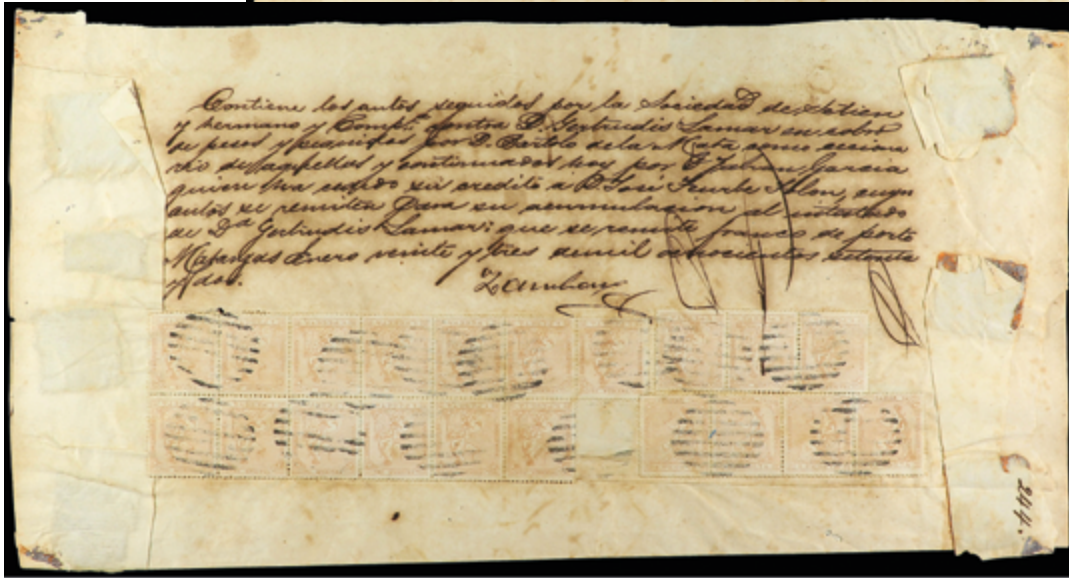 Contiene los autos seguidos por la Sociedad de
y hermano y Comp.ª contra D. Gertrudis Lamar en cobro
de pesos y por D. Bartolo de la Mata como
rio de aquellos y continuados hoy por D. Julian Garcia
quien ha cedido su credito a D. José
autos se remiten para su acumulacion al intestado
de D.ª Gertrudis Lamar: que se remite franco de porte
Matanzas Enero veinte y tres de mil ochocientos setenta
y dos.
244.